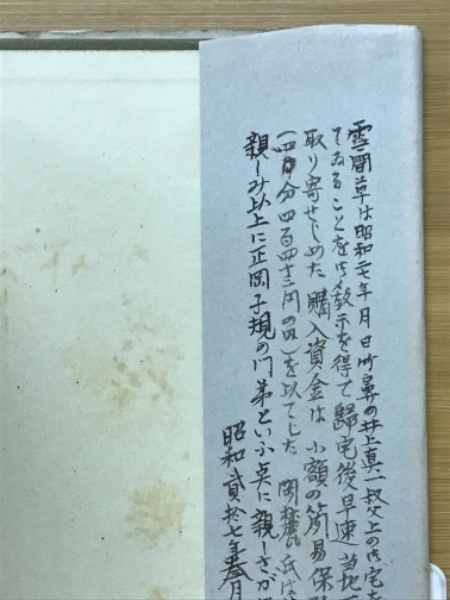 雲間草は昭和二七年 月 日竹鼻の井上真一叔父上の御宅を
てゐることを御教示を得て歸宅後早速当地
取り寄せしめた 購入資金は 小額の简易保
(四月分四百四十二円の内)を以てした 岡麓氏は
親しみ以上に正岡子規の門弟といふ点に親しさが
昭和貳拾七年
月